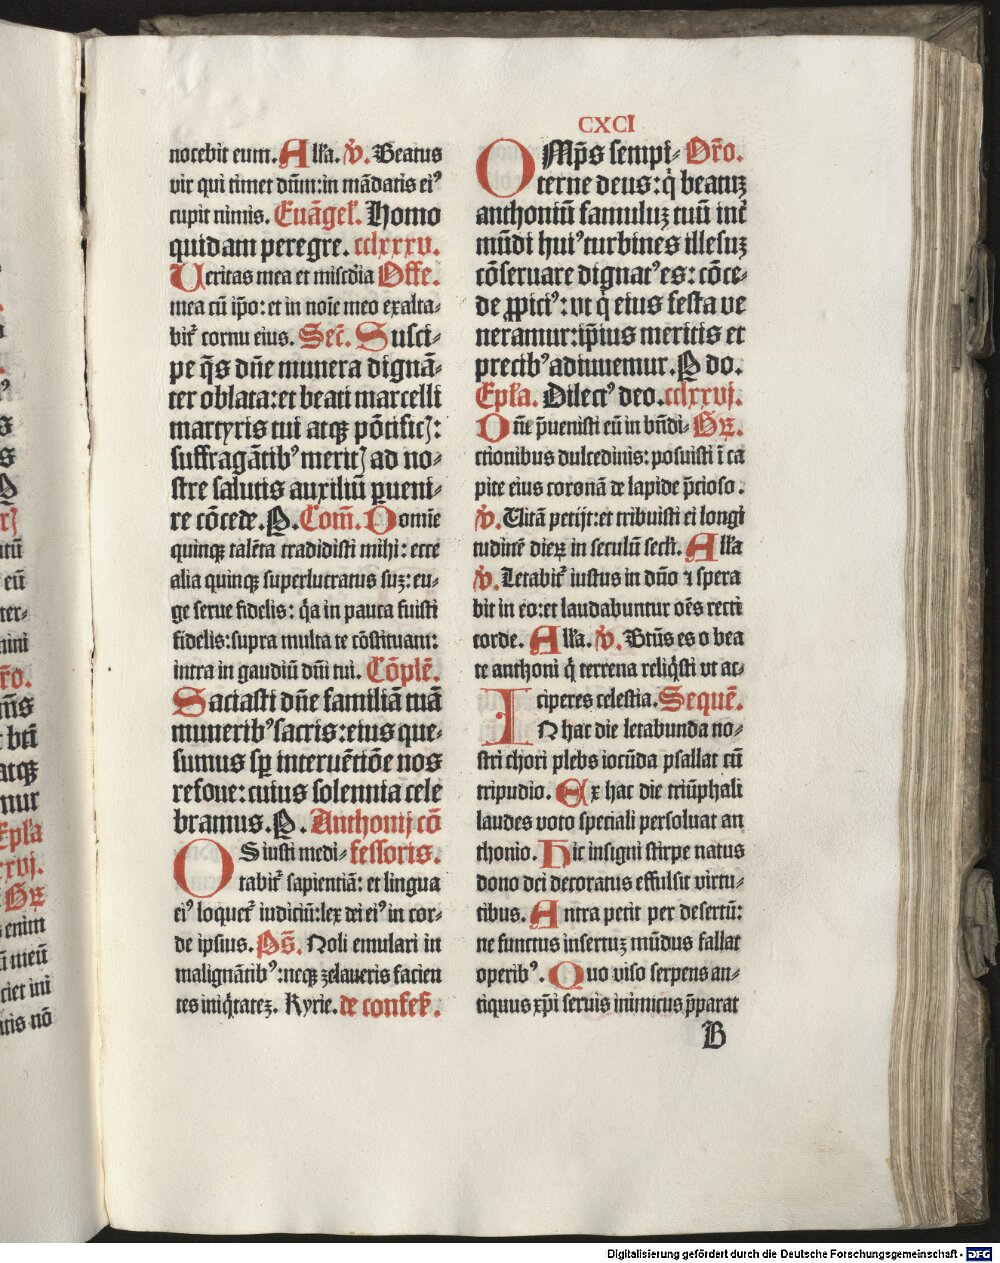 CXCI
nocebit eum. Alľa. v̄. Beatus
vir qui timet dn̄m: in mādatis eiꝰ
cupit nimis. Euāgeľ. Homo
quidam peregre. cclxxxv.
Ueritas mea et miscd̓ia Offe.
mea cū ip̄o: et in noīe meo exalta-
bit᷑ cornu eius. Sec̄. Susci-
pe q̄s dn̄e munera dignā-
ter oblata: et beati marcelli
martyris tui atqꝫ pōtificꝭ:
suffragātibꝰ meritꝭ ad no-
stre salutis auxiliū ꝑueni-
re cōcede. P. Com̄. Domīe
quinqꝫ talēta tradidisti mihi: ecce
alia quinqꝫ superlucratus suꝫ: eu-
ge serue fidelis: q̄a in pauca fuisti
fidelis: supra multa te cōstituam:
intra in gaudiū dn̄i tui. Cōplē.
Saciasti dn̄e familiā tuā
muneribꝰ sacris: eius que-
sumus sꝑ interuētiōe nos
refoue: cuius solennia cele
bramus. P. Anthonij cō
OS iusti medi- fessoris.
tabit᷑ sapientiā: et lingua
eiꝰ loquet᷑ iudiciū: lex dei eiꝰ in cor-
de ipsius. Ps̄. Noli emulari in
malignātibꝰ: neqꝫ zelaueris facien
tes iniq̇tateꝫ. Kyrie. de confeß.
OMp̄s sempi- Or̄o.
terne deus: q̇ beatuꝫ
anthoniū famuluꝫ tuū int̄
mūdi huiꝰ turbines illesuꝫ
cōseruare dignatꝰ es: cōce-
de ꝓpiciꝰ: vt q̇ eius festa ve
neramur: ip̄ius meritis et
precibꝰ adiuuemur. P do.
Epľa. Dilectꝰ deo. cclxxvj.
Dn̄e p̄uenisti eū in bn̄di- Gꝝ.
ctionibus dulcedinis: posuisti ī ca
pite eius coronā de lapide p̄cioso.
v̄. Uitā petijt: et tribuisti ei longi
tudinē dieꝝ in seculū secľi. Alľa
v̄. Letabit᷑ iustus in dn̄o ⁊ spera
bit in eo: et laudabuntur oēs recti
corde. Alľa. v̄. Btūs es o bea
te anthoni q̇ terrena reliq̇sti vt ac-
ciperes celestia. Sequē.
IN hac die letabunda no-
stri chori plebs iocūda psallat cū
tripudio. Ex hac die triūphali
laudes voto speciali persoluat an
thonio. Hic insigni stirpe natus
dono dei decoratus effulsit virtu-
tibus. Antra petit per desertū:
ne functus insertuꝫ mūdus fallat
operibꝰ. Quo viso serpens an-
tiquus xp̄i seruis inimicus p̄parat
B
Digitalisierung gefördert durch die Deutsche Forschungsgemeinschaft - DFG